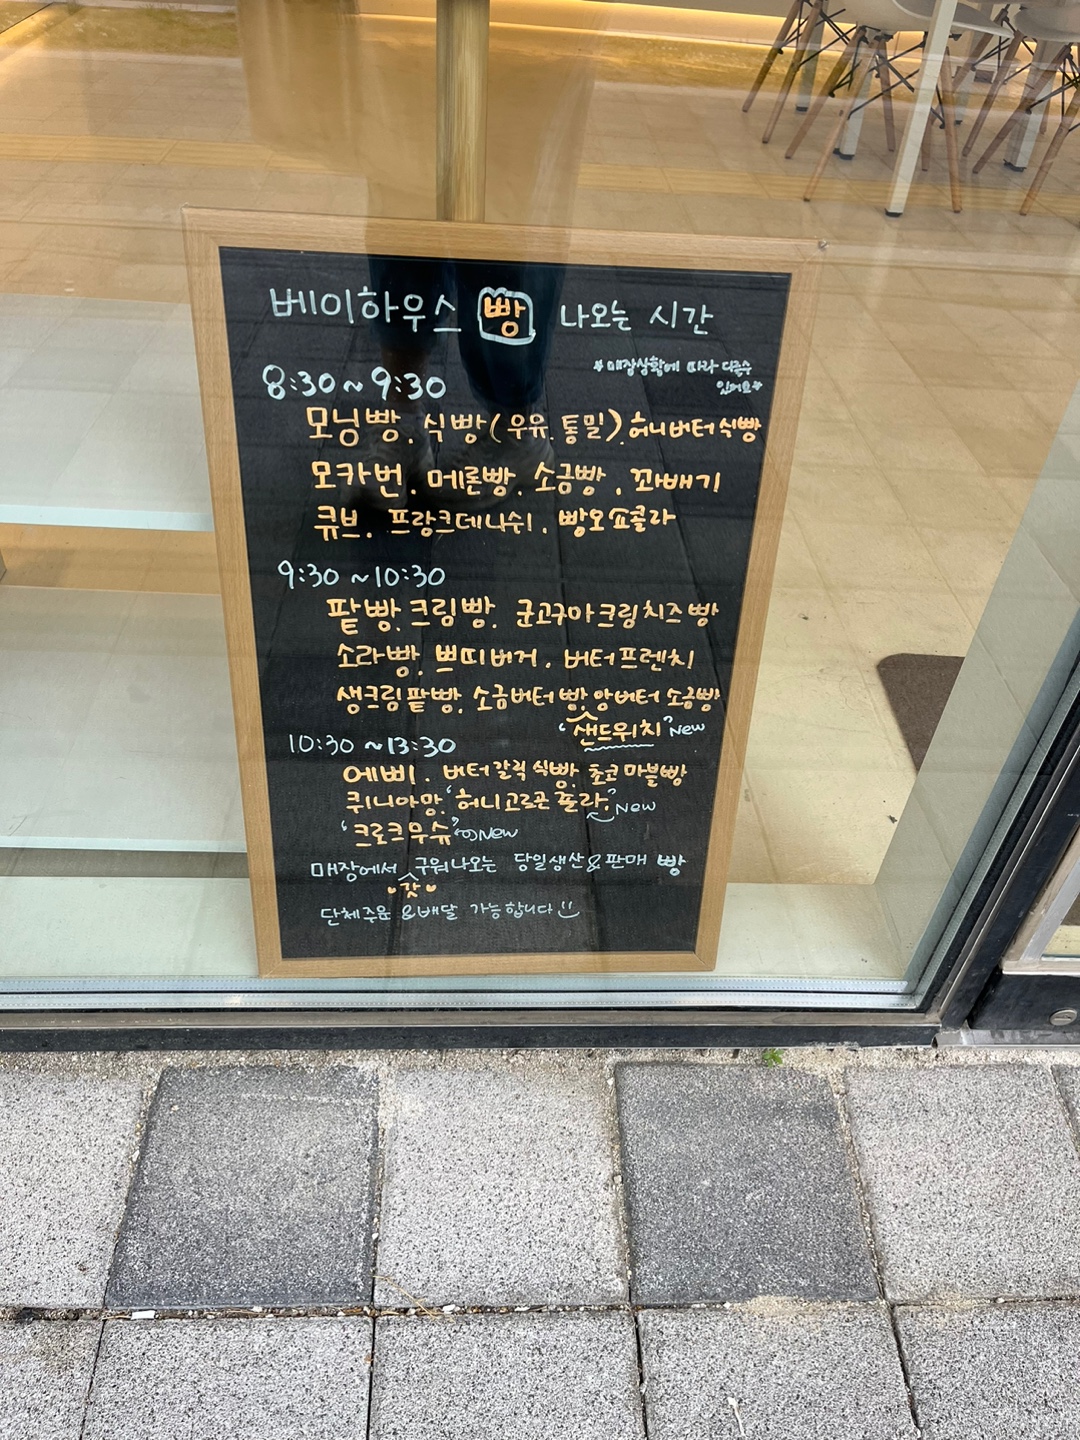 베이하우스 빵 나오는 시간
*매장상황에 따라 다를수
있어요*
8:30~9:30
모닝빵, 식빵(우유, 통밀), 허니버터식빵
모카번, 메론빵, 소금빵, 꽈배기
큐브, 프랑크데니쉬, 빵오쇼콜라
9:30~10:30
팥빵, 크림빵, 군고구마크림치즈빵
소라빵, 쁘띠버거, 버터프렌치
생크림팥빵, 소금버터빵, 앙버터소금빵
'샌드위치' New
10:30~13:30
에삐, 버터갈릭식빵, 초코마블빵
퀴니아망, '허니고르곤졸라,' New
'크로크무슈' New
매장에서 구워나오는 당일생산&판매 빵
갓
단체주문&배달 가능합니다